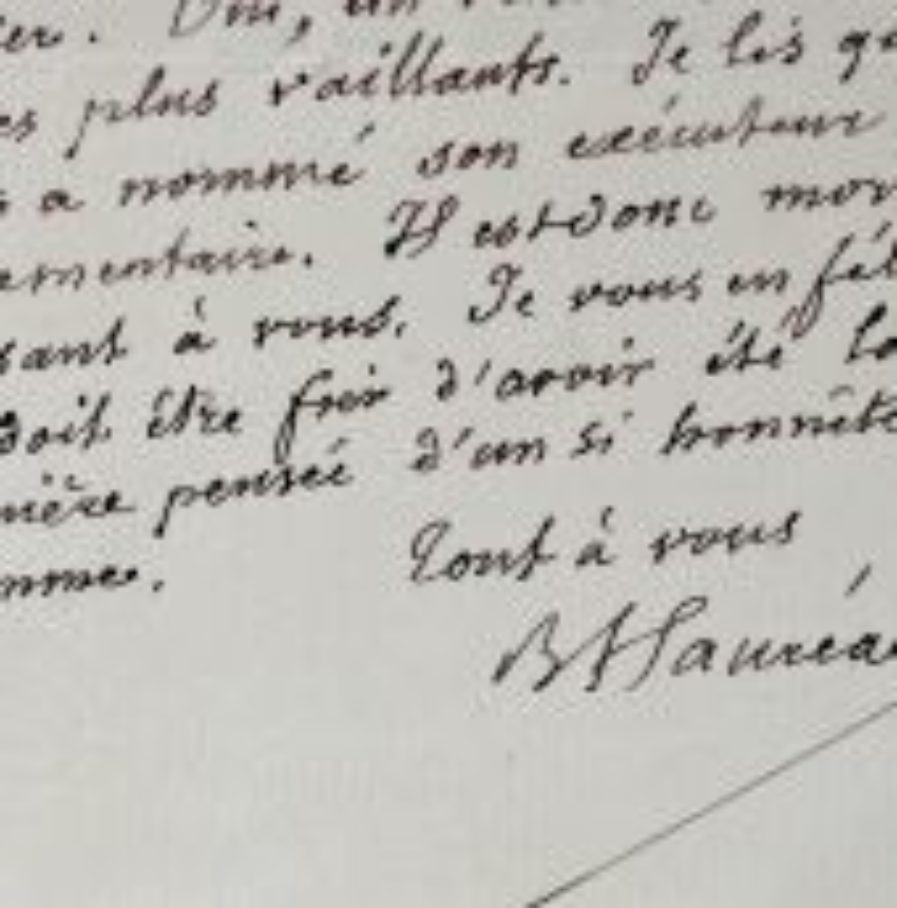 er. Oui, un
es plus vaillants. Je lis qu
s a nommé son exécuteur
ementaire. Il est donc mor
sant à vous. Je vous en fél
doit être fier d'avoir été la
nière pensée d'un si honnête
omme. Tout à vous
B Hauréau